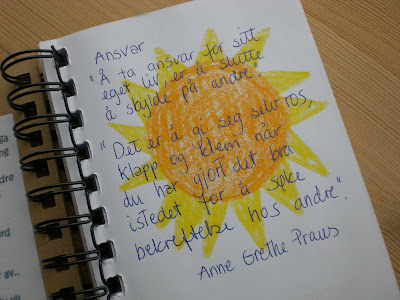 Ansvar
"Å ta ansvar for sitt
eget liv, er å slutte
å skylde på andre".
"Det er å gi seg selv ros,
klapp og klem når
du har gjort det bra
istedet for å søke
bekreftelse hos andre".
Anne Grethe Praus